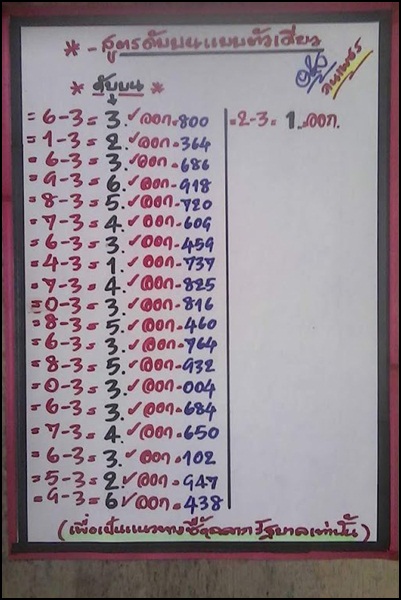 * - สูตรดับบนแบบตัวเดียว
คนเพชร
* ดับบน *
= 6-3 = 3. ✓ออก-800
= 1-3 = 2. ✓ออก-364
= 6-3 = 3. ✓ออก-686
= 9-3 = 6. ✓ออก-918
= 8-3 = 5. ✓ออก-720
= 7-3 = 4. ✓ออก-609
= 6-3 = 3. ✓ออก-459
= 4-3 = 1. ✓ออก-737
= 7-3 = 4. ✓ออก-825
= 0-3 = 3. ✓ออก-816
= 8-3 = 5. ✓ออก-460
= 6-3 = 3. ✓ออก-764
= 8-3 = 5. ✓ออก-932
= 0-3 = 3. ✓ออก-004
= 6-3 = 3. ✓ออก-684
= 7-3 = 4. ✓ออก-650
= 6-3 = 3. ✓ออก-102
= 5-3 = 2. ✓ออก-947
= 9-3 = 6. ✓ออก-438
= 2-3 = 1. ออก.
(เพื่อเป็นแนวทางซื้อฉลากรัฐบาลเท่านั้น)